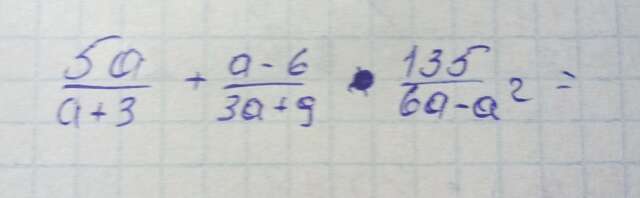 5a/(a+3) + (a-6)/(3a+9) • 135/(6a-a²) =